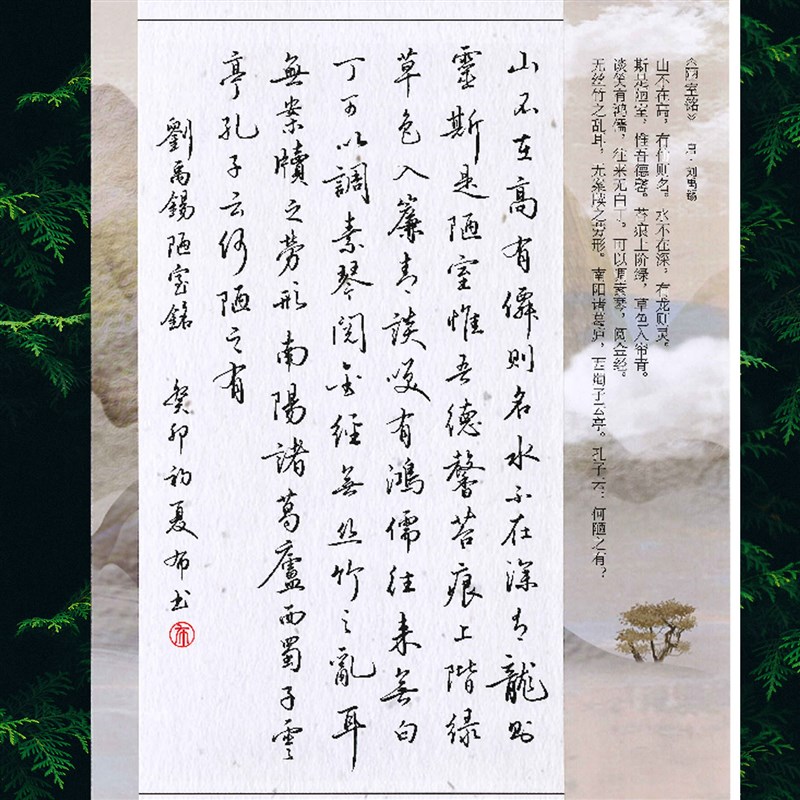 《陋室铭》 唐·刘禹锡
山不在高，有仙则名。水不在深，有龙则灵。
斯是陋室，惟吾德馨。苔痕上阶绿，草色入帘青。
谈笑有鸿儒，往来无白丁。可以调素琴，阅金经。
无丝竹之乱耳，无案牍之劳形。南阳诸葛庐，西蜀子云亭。孔子云：何陋之有？
山不在高有僊則名水不在深有龍則
靈斯是陋室惟吾德馨苔痕上階緑
草色入簾青談笑有鴻儒往来無白
丁可以調素琴閲金經無丝竹之亂耳
無案牘之勞形南陽諸葛廬西蜀子雲
亭孔子云何陋之有
劉禹錫陋室銘 癸卯初夏布书
布